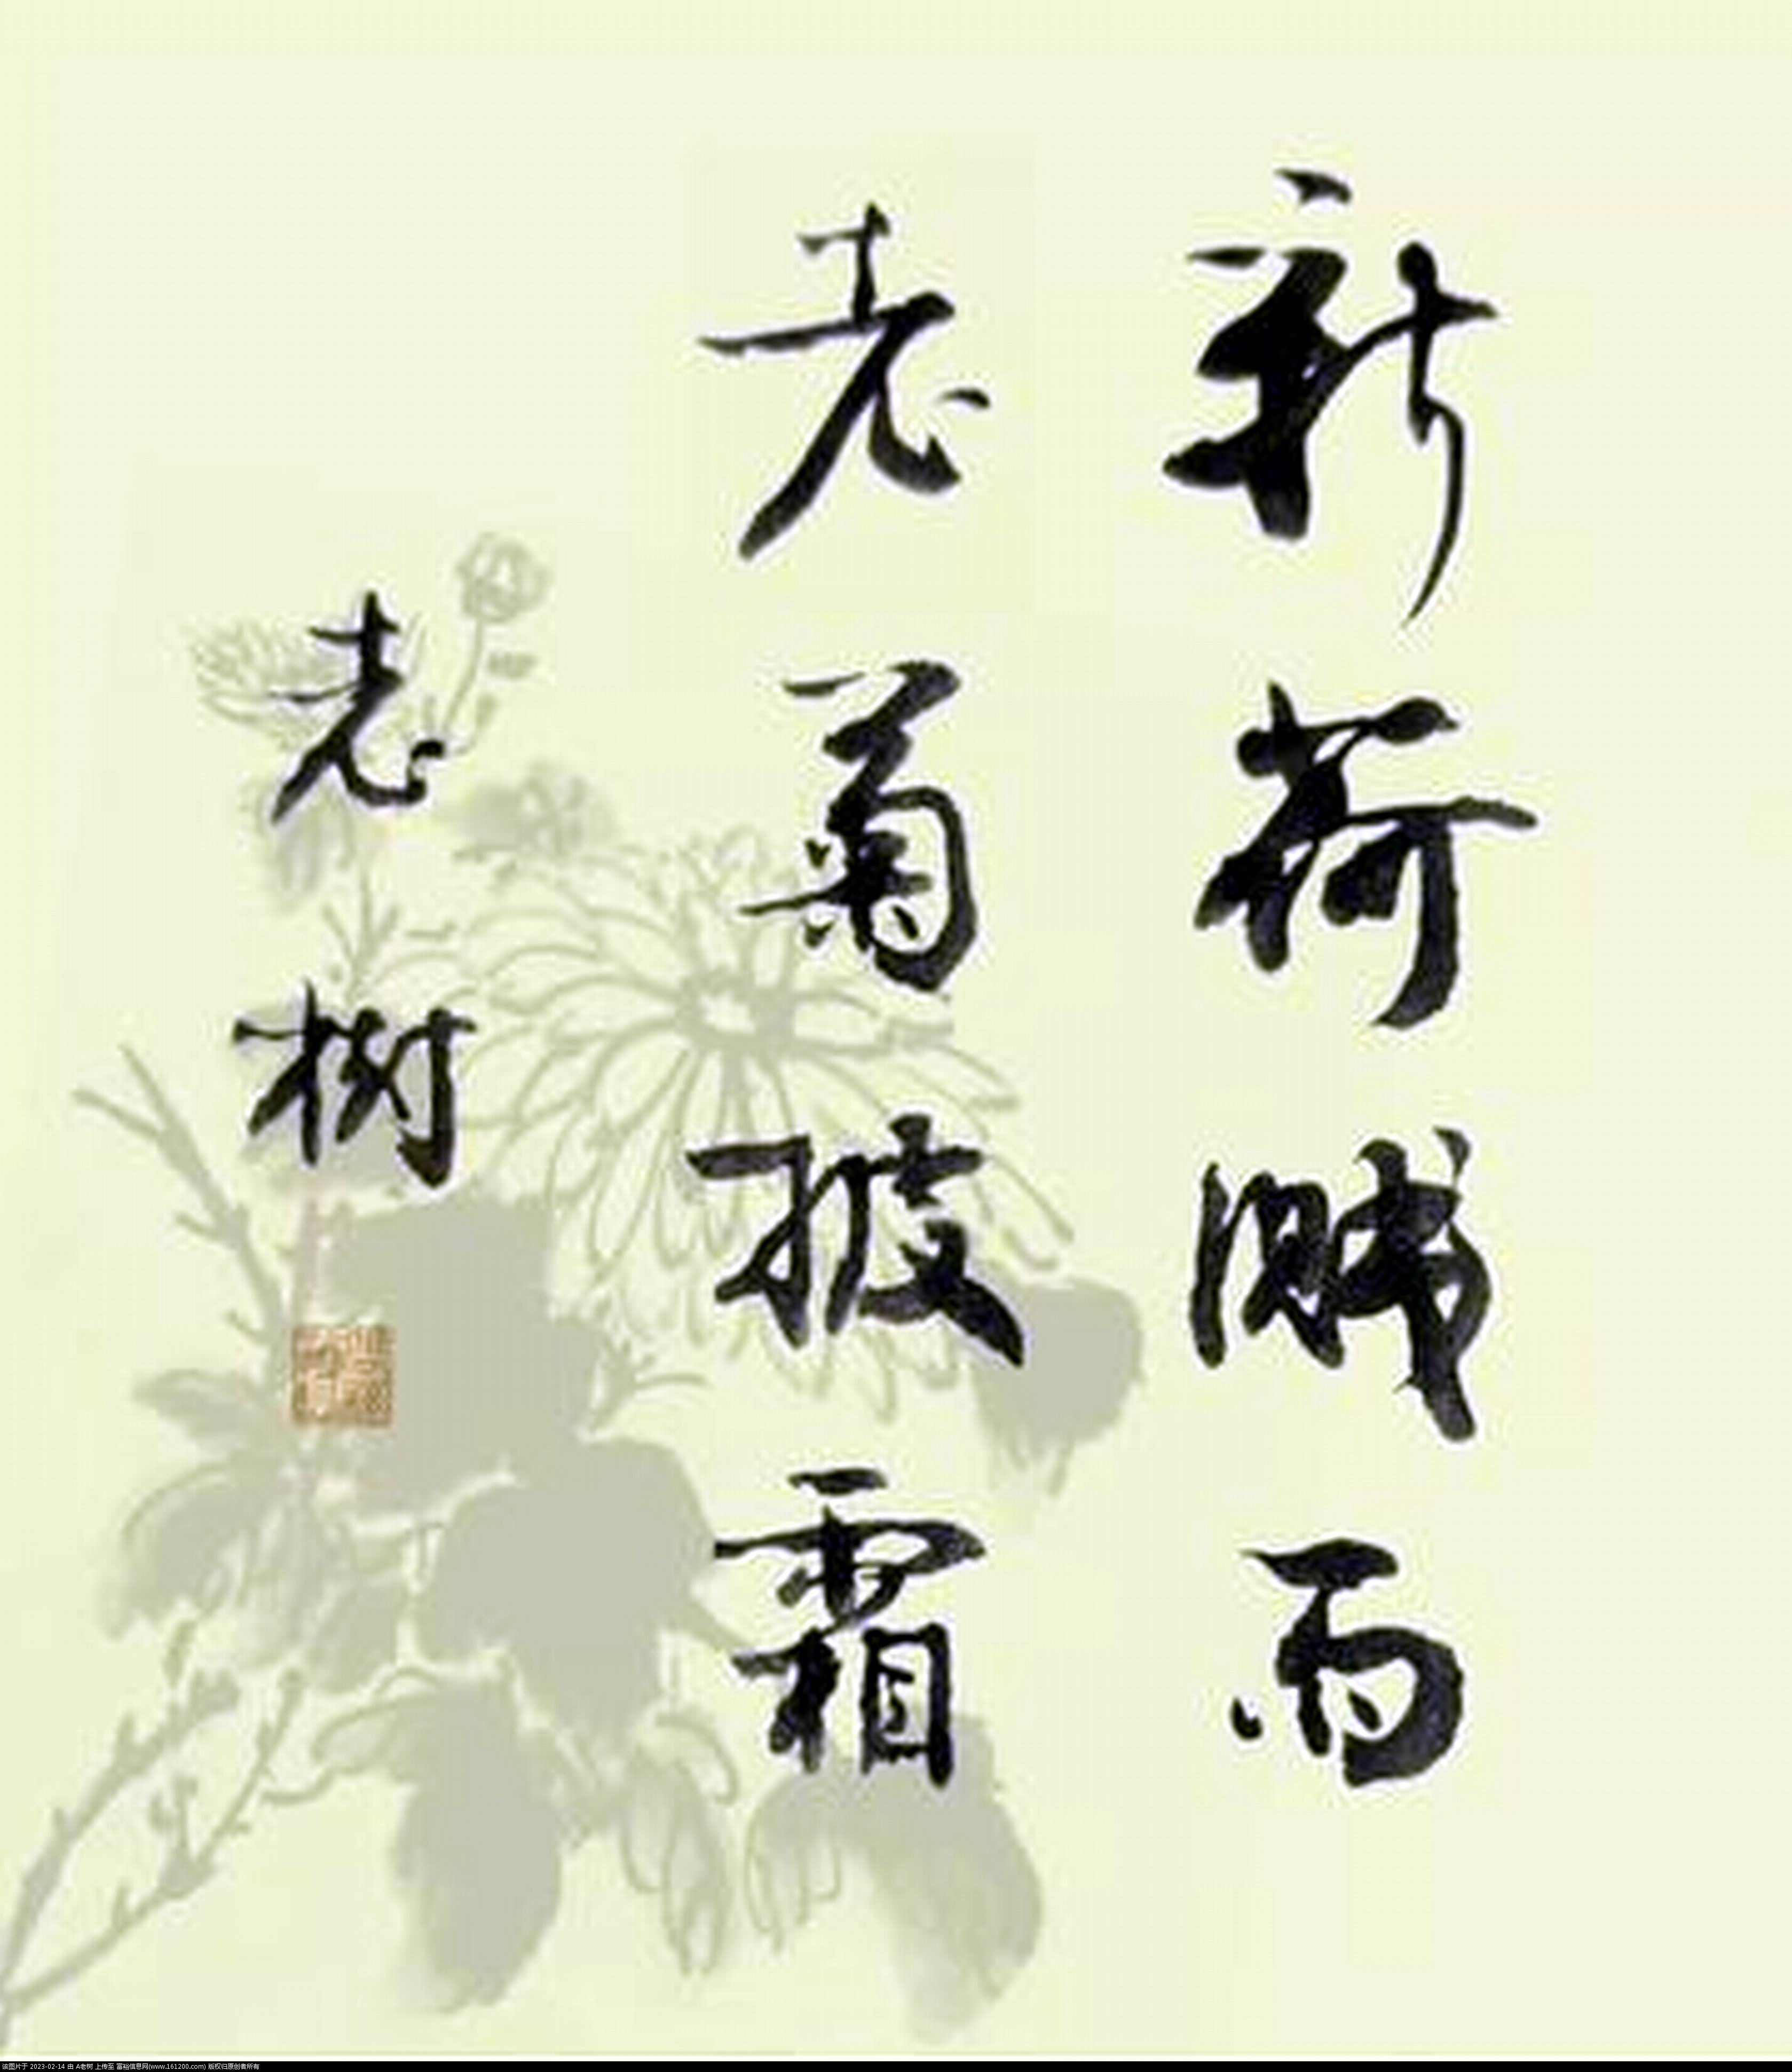 新荷賦雨
老菊披霜
老树
该图片于 2023-02-14 由 A老树 上传至 富裕信息网(www.161200.com) 版权归原创者所有